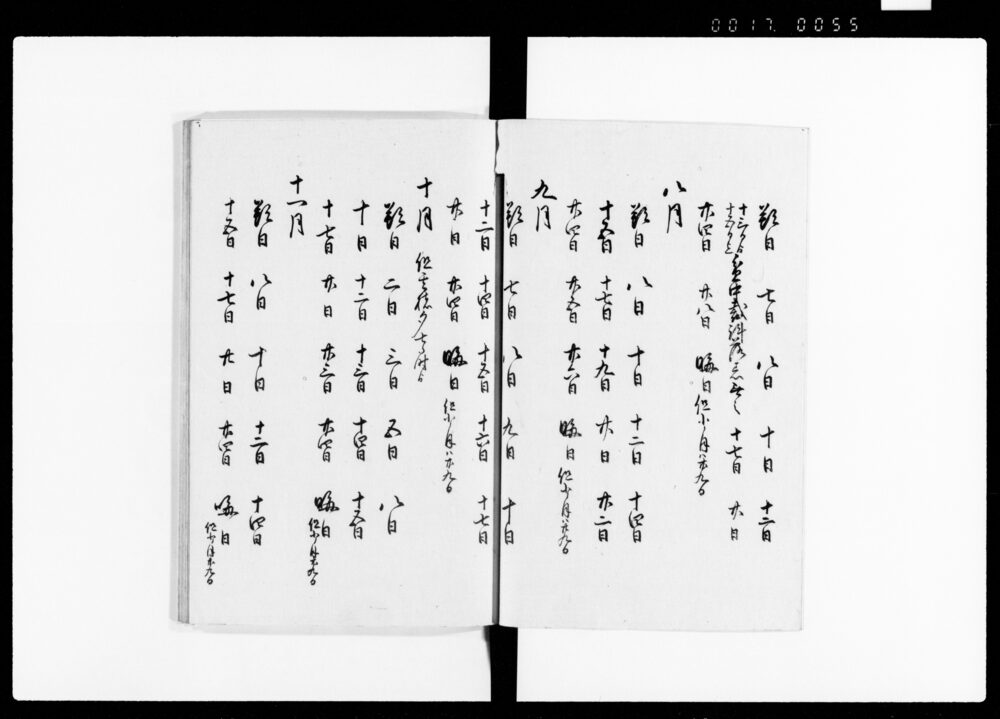 0017. 0055
朔日 七日 八日 十日 十二日
十三日
十五日
盆中 十七日 廿日
廿四日 廿八日 晦日 但小ノ月ハ廿九日
八月
朔日 八日 十日 十二日 十四日
十五日 十七日 十九日 廿日 廿二日
廿四日 廿五日 廿六日 晦日 但小ノ月ハ廿九日
九月
朔日 七日 八日 九日 十日
十二日 十四日 十五日 十六日 十七日
廿日 廿四日 晦日 但小ノ月ハ廿九日
十月 但
朔日 二日 三日 五日 八日
十日 十二日 十三日 十四日 十五日
十七日 廿日 廿三日 廿四日 晦日 但小ノ月ハ廿九日
十一月
朔日 八日 十日 十二日 十四日
十五日 十七日 廿日 廿四日 晦日 但小ノ月ハ廿九日